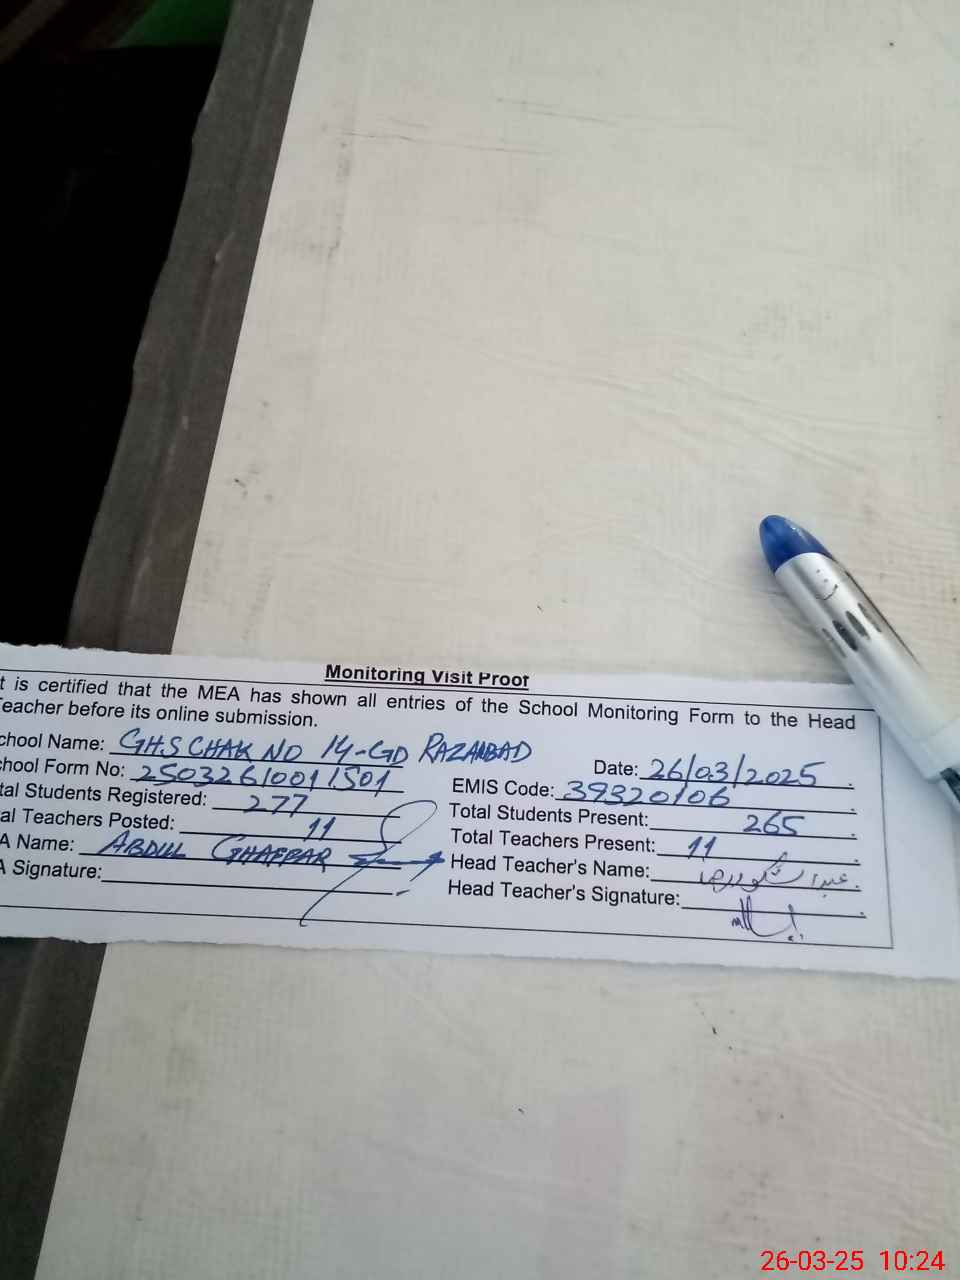 Monitoring Visit Proof
t is certified that the MEA has shown all entries of the School Monitoring Form to the Head
eacher before its online submission.
chool Name: GHS CHAK NO 14-GD RAZAABAD
Date: 26/03/2025
hool Form No: 25032610011501
EMIS Code: 39320106
tal Students Registered: 277
Total Students Present: 265
al Teachers Posted: 11
Total Teachers Present: 11
A Name: ABDUL GHAFFAR
Head Teacher's Name:
A Signature:
Head Teacher's Signature:
26-03-25 10:24